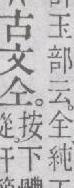 玉部云全純
古文仝。按下
從